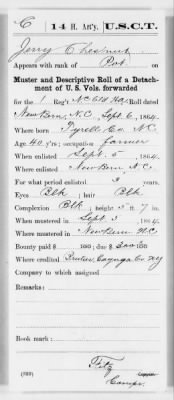 C | 14 H. Art'y. | U.S.C.T.
Jerry Chesnut
Appears with rank of Pvt. on
Muster and Descriptive Roll of a Detach-
ment of U. S. Vols. forwarded
for the 1 Reg't NC Cld HA. Roll dated
New Bern, N.C., Sept. 6, 1864.
Where born Tyrell Co. N.C.
Age 40 y'rs; occupation farmer
When enlisted Sept. 5, 1864.
Where enlisted New Bern, N.C.
For what period enlisted 3 years.
Eyes Blk; hair Blk
Complexion Blk; height 5 ft. 7 in.
When mustered in Sept. 5, 1864.
Where mustered in New Bern N.C.
Bounty paid $ 100; due $ 300 100
Where credited Cayuga Co NY
Company to which assigned
Remarks:
Book mark:
Fitz
Copyist.